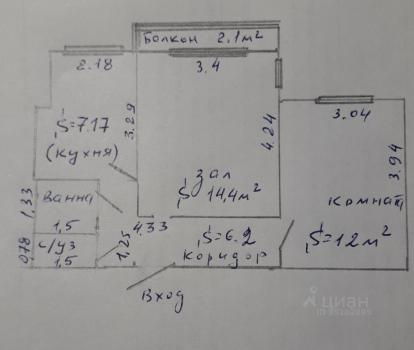 Балкон 2.1м²
2.18
3.4
3.29
S=7.17
(кухня)
4.24
3.04
3.94
зал
S 14,4м²
Ванна
1,33
1,5
4.33
комнат
S=12м²
S=6.2
коридор
1,25
0,78
с/уз
1.5
Вход
циан